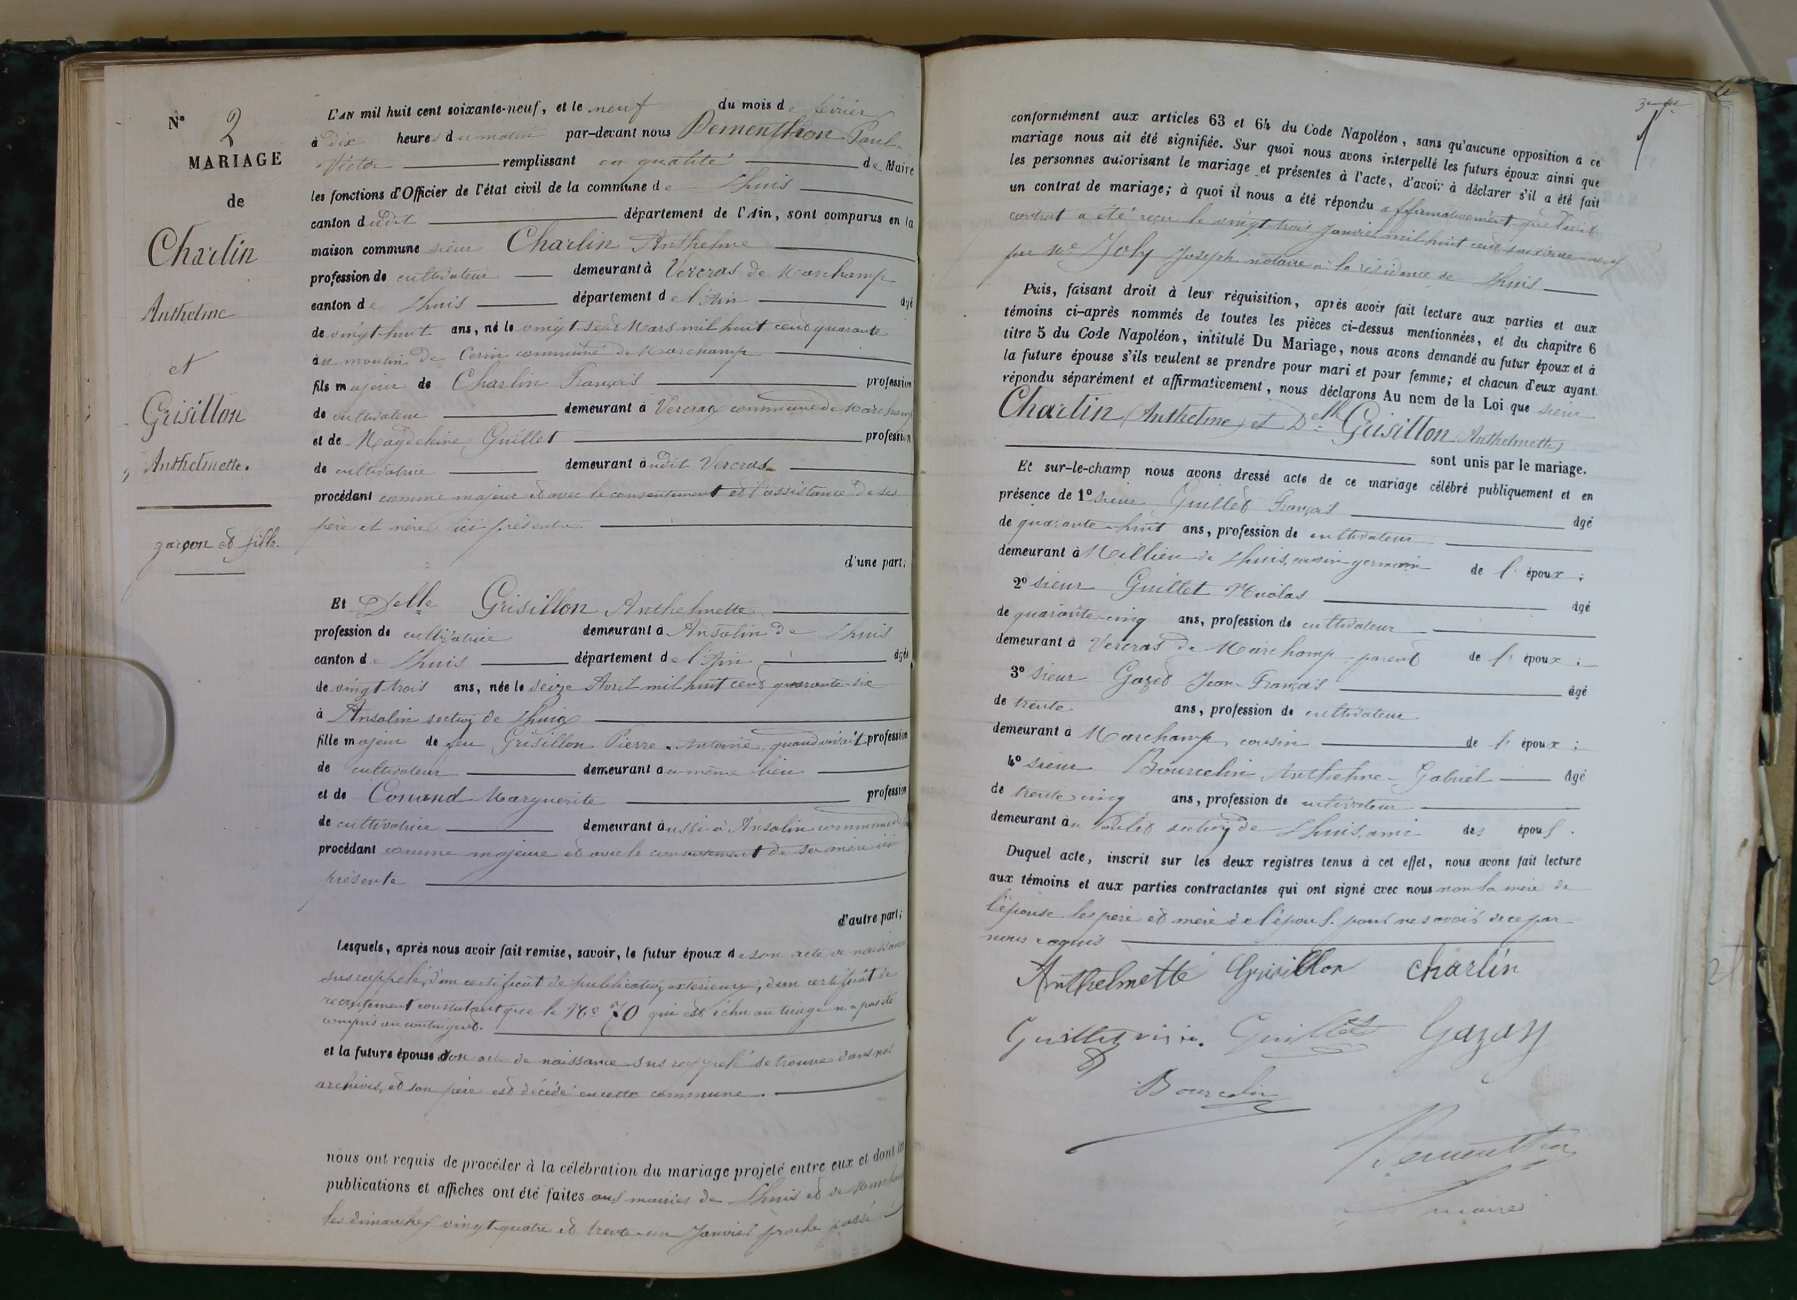 N° 2
MARIAGE
de
Charlin
Anthelme
et
Grisillon
Anthelmette.
garçon et fille.
L'AN mil huit cent soixante-neuf, et le neuf du mois de février
à dix heures du matin par-devant nous Dementhon Paul
Victor remplissant en qualité de Maire
les fonctions d'Officier de l'état civil de la commune de Lhuis
canton dudit département de l'Ain, sont comparus en la
maison commune sieur Charlin Anthelme
profession de cultivateur demeurant à Vercras de Marchamp
canton de Lhuis département de l'Ain âgé
de vingt huit ans, né le vingt sept Mars mil huit cent quarante
au moulin de Cerin commune de Marchamp
fils majeur de Charlin François profession
de cultivateur demeurant à Vercras commune de Marchamp
et de Magdeleine Guillet profession
de cultivatrice demeurant audit Vercras
procédant comme majeur et avec le consentement et l'assistance de ses
père et mère ici présents
d'une part;
Et Delle Grisillon Anthelmette
profession de cultivatrice demeurant à Ansolin de Lhuis
canton de Lhuis département de l'Ain âgée
de vingt trois ans, née le seize Avril mil huit cent quarante six
à Ansolin section de Lhuis
fille majeure de feu Grisillon Pierre Antoine, quand vivait profession
de cultivateur demeurant au même lieu
et de Comand Marguerite profession
de cultivatrice demeurant aussi à Ansolin commune
procédant comme majeure et avec le consentement de sa mère ici
présente
d'autre part;
Lesquels, après nous avoir fait remise, savoir, le futur époux de son acte de naissance
sus rappelé, d'un certificat de publication extérieure, d'un certificat de
recrutement constatant que le N° 70 qui est échu au tirage n'a pas été
compris au contingent.
et la future épouse son acte de naissance sus rappelé se trouve dans nos
archives, et son père est décédé en cette commune.
nous ont requis de procéder à la célébration du mariage projeté entre eux et dont les
publications et affiches ont été faites aux mairies de Lhuis et de Marchamp
les dimanches vingt quatre et trente-un Janvier proche passé
conformément aux articles 63 et 64 du Code Napoléon, sans qu'aucune opposition à ce
mariage nous ait été signifiée. Sur quoi nous avons interpellé les futurs époux ainsi que
les personnes autorisant le mariage et présentes à l'acte, d'avoir à déclarer s'il a été fait
un contrat de mariage; à quoi il nous a été répondu affirmativement que ledit
contrat a été reçu le vingt trois janvier mil huit cent soixante neuf
par Me Joly Joseph notaire à la résidence de Lhuis
Puis, faisant droit à leur réquisition, après avoir fait lecture aux parties et aux
témoins ci-après nommés de toutes les pièces ci-dessus mentionnées, et du chapitre 6
titre 5 du Code Napoléon, intitulé Du Mariage, nous avons demandé au futur époux et à
la future épouse s'ils veulent se prendre pour mari et pour femme; et chacun d'eux ayant
répondu séparément et affirmativement, nous déclarons Au nom de la Loi que sieur
Charlin (Anthelme) et Delle Grisillon (Anthelmette)
sont unis par le mariage.
Et sur-le-champ nous avons dressé acte de ce mariage célébré publiquement et en
présence de 1° sieur Guillet François âgé
de quarante-huit ans, profession de cultivateur
demeurant à Millieu de Lhuis, cousin germain de l' époux;
2° sieur Guillet Nicolas âgé
de quarante-cinq ans, profession de cultivateur
demeurant à Vercras de Marchamp parent de l' époux;
3° sieur Jean François âgé
de trente ans, profession de cultivateur
demeurant à Marchamp, cousin de l' époux;
4° sieur Bourcelin Anthelme-Gabriel âgé
de trente cinq ans, profession de cultivateur
demeurant au section de Lhuis, ami des époux.
Duquel acte, inscrit sur les deux registres tenus à cet effet, nous avons fait lecture
aux témoins et aux parties contractantes qui ont signé avec nous non la mère de
l'épouse les père et mère de l'époux pour ne savoir de ce par
nous requis
Anthelmette Grisillon Charlin
Guillet Gazay
Bourcelin
Dementhon
maire